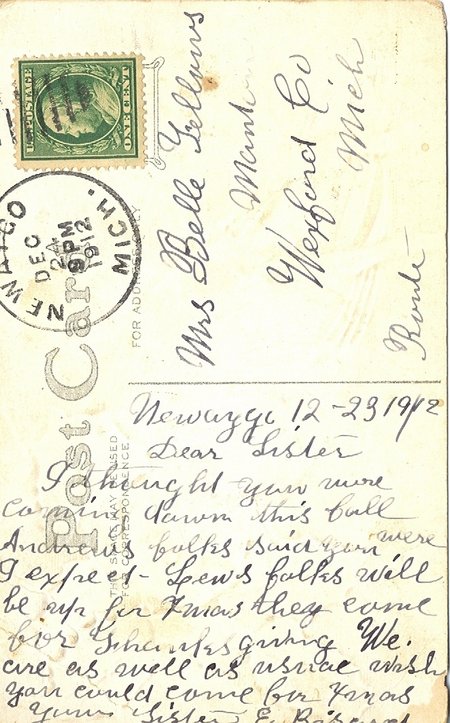 U.S. POSTAGE
ONE CENT
NEWAYGO
MICH.
DEC
24
9PM
1912
Post Card
FOR ADDRESS ONLY
THIS SPACE MAY BE USED
FOR CORRESPONDENCE
Mrs Belle
Wexford Co
Mich
Route
Newaygo 12-23 1912
Dear Sister
I thought you were
coming down this fall
Andrews folks said you were
I expect Lews folks will
be up for Xmas they come
for Thanksgiving We.
are as well as usual wish
you could come for Xmas
Your Sister E.